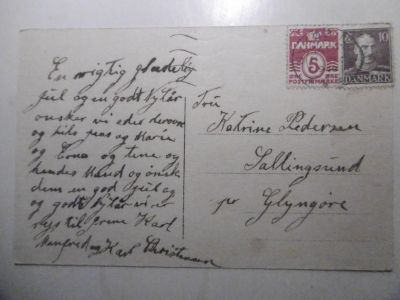 En rigtig glædelig
jul og en godt nytår
ønsker vi eder
og hils jens og Marie
og Erna og tine og
hendes Mand og ønsk
dem en god jul og
og godt Nytår vi er
rejs til Karl
Manfred og Karl Christensen
DANMARK
5
ØRE ØRE
POSTFRIMÆRKE
10
DANMARK
Fru
Katrine Pedersen
Sallingsund
pr Glyngøre